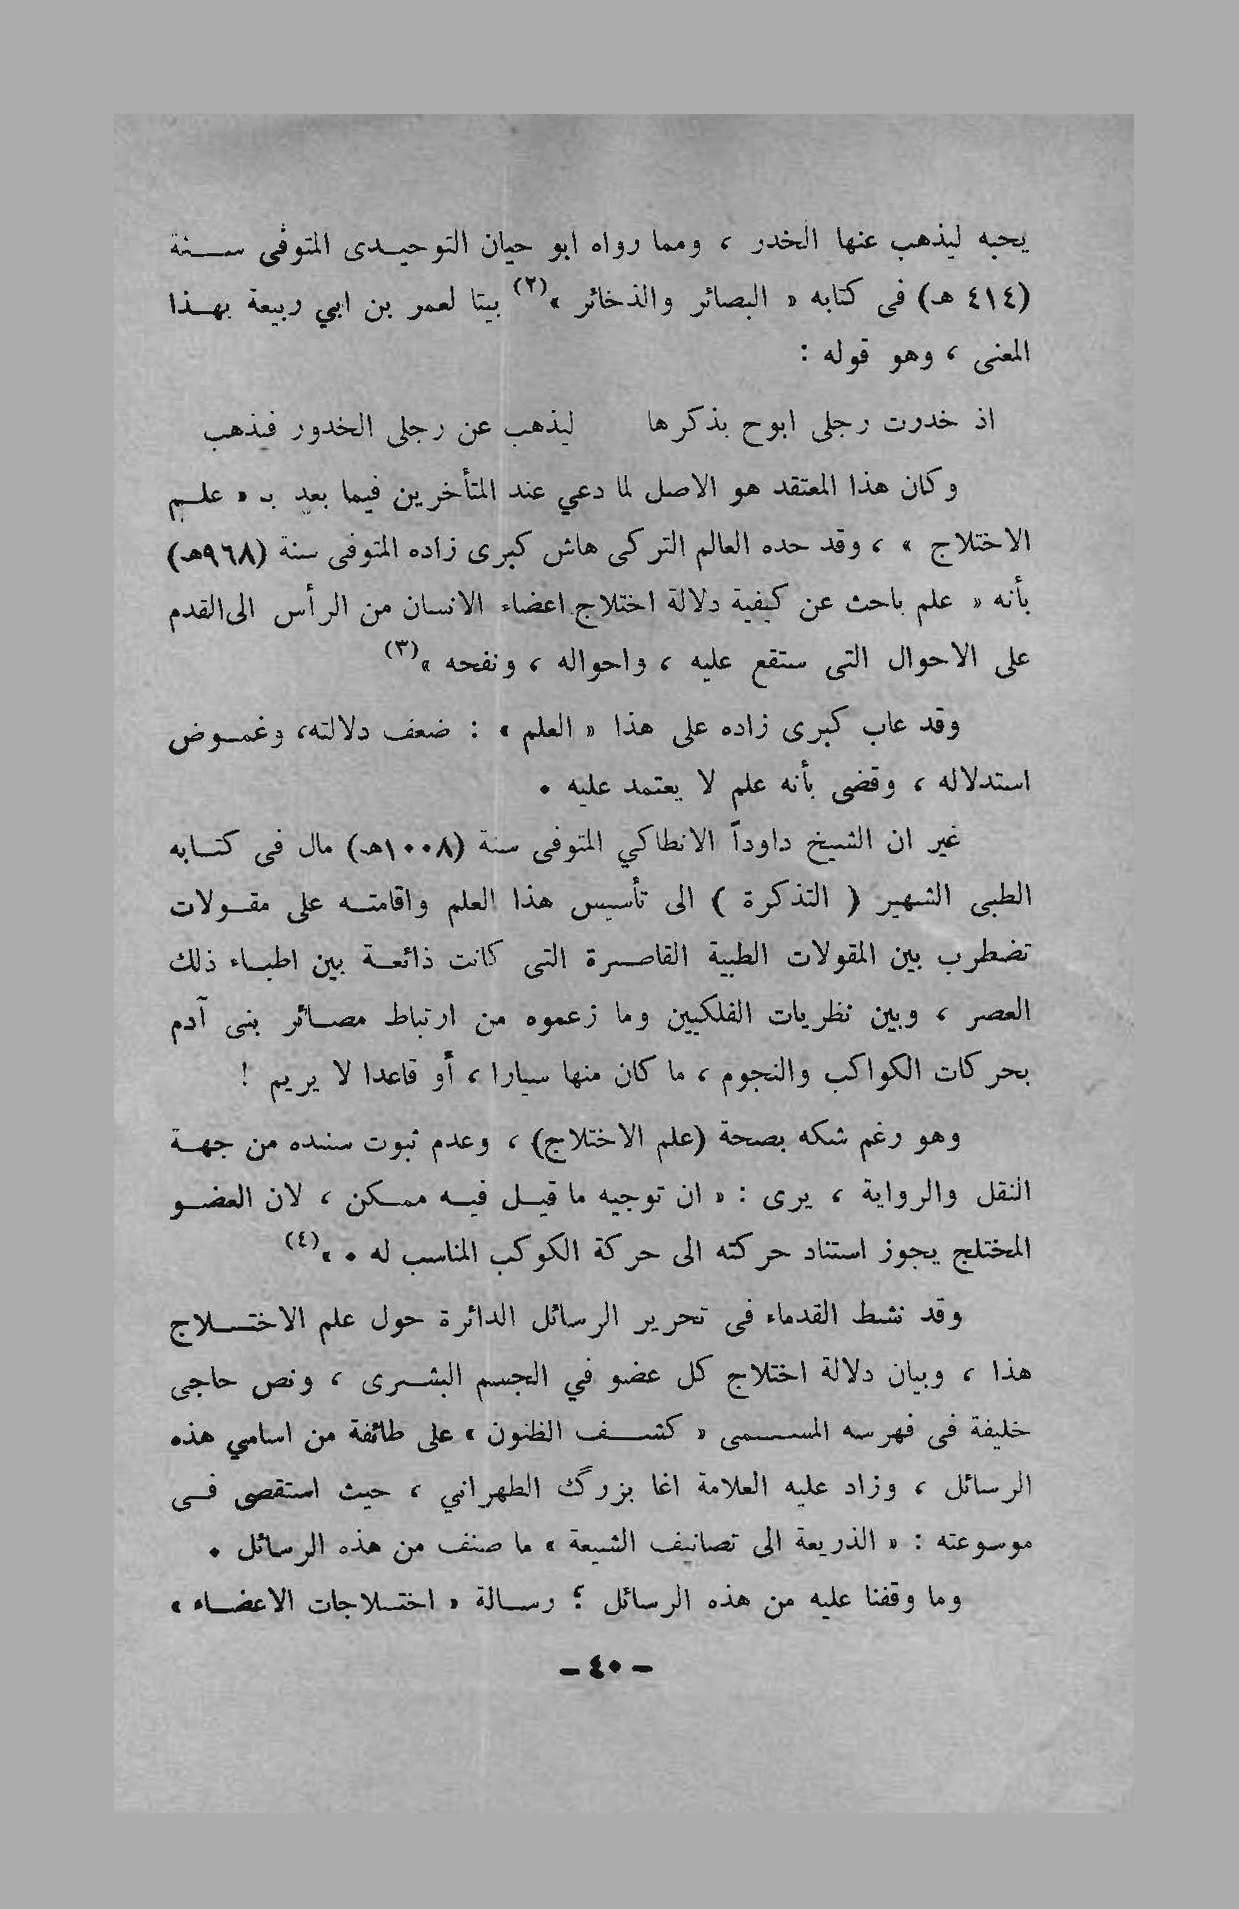 يحبه ليذهب عنها الخدر ، ومما رواه ابو حيان التوحيدى المتوفى سنة
(٤١٤ هـ) فى كتابه « البصائر والذخائر »(٢) بيتا لعمر بن ابي ربيعة بهذا
المعنى ، وهو قوله :
اذ خدرت رجلى ابوح بذكرها ليذهب عن رجلى الخدور فيذهب
وكان هذا المعتقد هو الاصل لما دعي عند المتأخرين فيما بعد بـ « علم
الاختلاج » ، وقد حده العالم التركى هاش كبرى زاده المتوفى سنة (٩٦٨هـ)
بأنه « علم باحث عن كيفية دلالة اختلاج اعضاء الانسان من الرأس الى القدم
على الاحوال التى ستقع عليه ، واحواله ، ونفحه »(٣)
وقد عاب كبرى زاده على هذا « العلم » : ضعف دلالته، وغموض
استدلاله ، وقضى بأنه علم لا يعتمد عليه ٠
غير ان الشيخ داوداً الانطاكي المتوفى سنة (١٠٠٨هـ) مال فى كتابه
الطبى الشهير ( التذكرة ) الى تأسيس هذا العلم واقامته على مقولات
تضطرب بين المقولات الطبية القاصرة التى كانت ذائعة بين اطباء ذلك
العصر ، وبين نظريات الفلكيين وما زعموه من ارتباط مصائر بنى آدم
بحركات الكواكب والنجوم ، ما كان منها سيارا ، أو قاعدا لا يريم !
وهو رغم شكه بصحة (علم الاختلاج) ، وعدم ثبوت سنده من جهة
النقل والرواية ، يرى : « ان توجيه ما قيل فيه ممكن ، لان العضو
المختلج يجوز استناد حركته الى حركة الكوكب المناسب له ٠ »(٤)
وقد نشط القدماء فى تحرير الرسائل الدائرة حول علم الاختلاج
هذا ، وبيان دلالة اختلاج كل عضو في الجسم البشرى ، ونص حاجى
خليفة فى فهرسه المسمى « كشف الظنون » على طائفة من اسامي هذه
الرسائل ، وزاد عليه العلامة اغا بزرگ الطهراني ، حيث استقصى فى
موسوعته : « الذريعة الى تصانيف الشيعة » ما صنف من هذه الرسائل ٠
وما وقفنا عليه من هذه الرسائل ؛ رسالة « اختلاجات الاعضاء »
- ٤٠ -